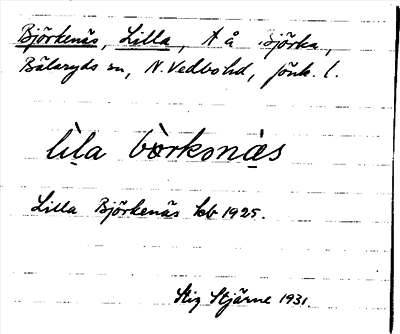 Björkenäs, Lilla, t å Björka,
Bälaryds sn, N. Vedbo hd, Jönk. l.
lila børksnäs
Lilla Björkenäs kb 1925.
Stig Stjärne 1931.